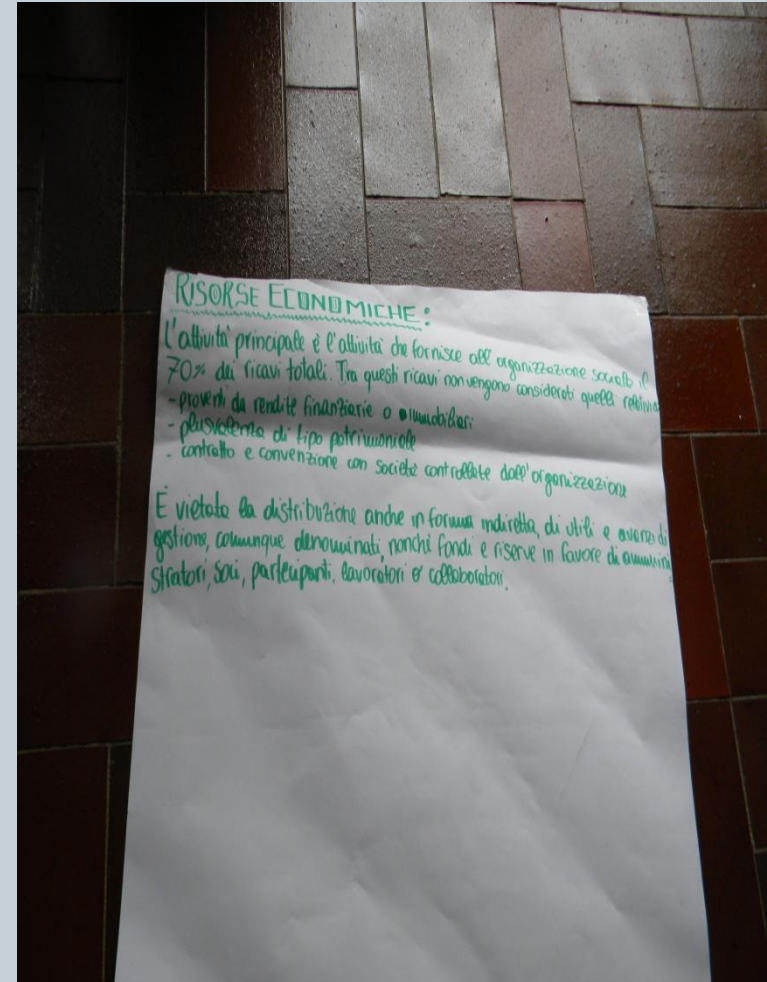 RISORSE ECONOMICHE:
L'attività principale è l'attività che fornisce all'organizzazione sociale il
70% dei ricavi totali. Tra questi ricavi non vengono considerati quelli relativi a
- proventi da rendite finanziarie o immobiliari
- plusvalenze di tipo patrimoniale
- contratto e convenzione con società controllate dall'organizzazione
È vietata la distribuzione anche in forma indiretta, di utili e avanzi di
gestione, comunque denominati, nonché fondi e riserve in favore di ammini
stratori, soci, partecipanti, lavoratori o collaboratori.